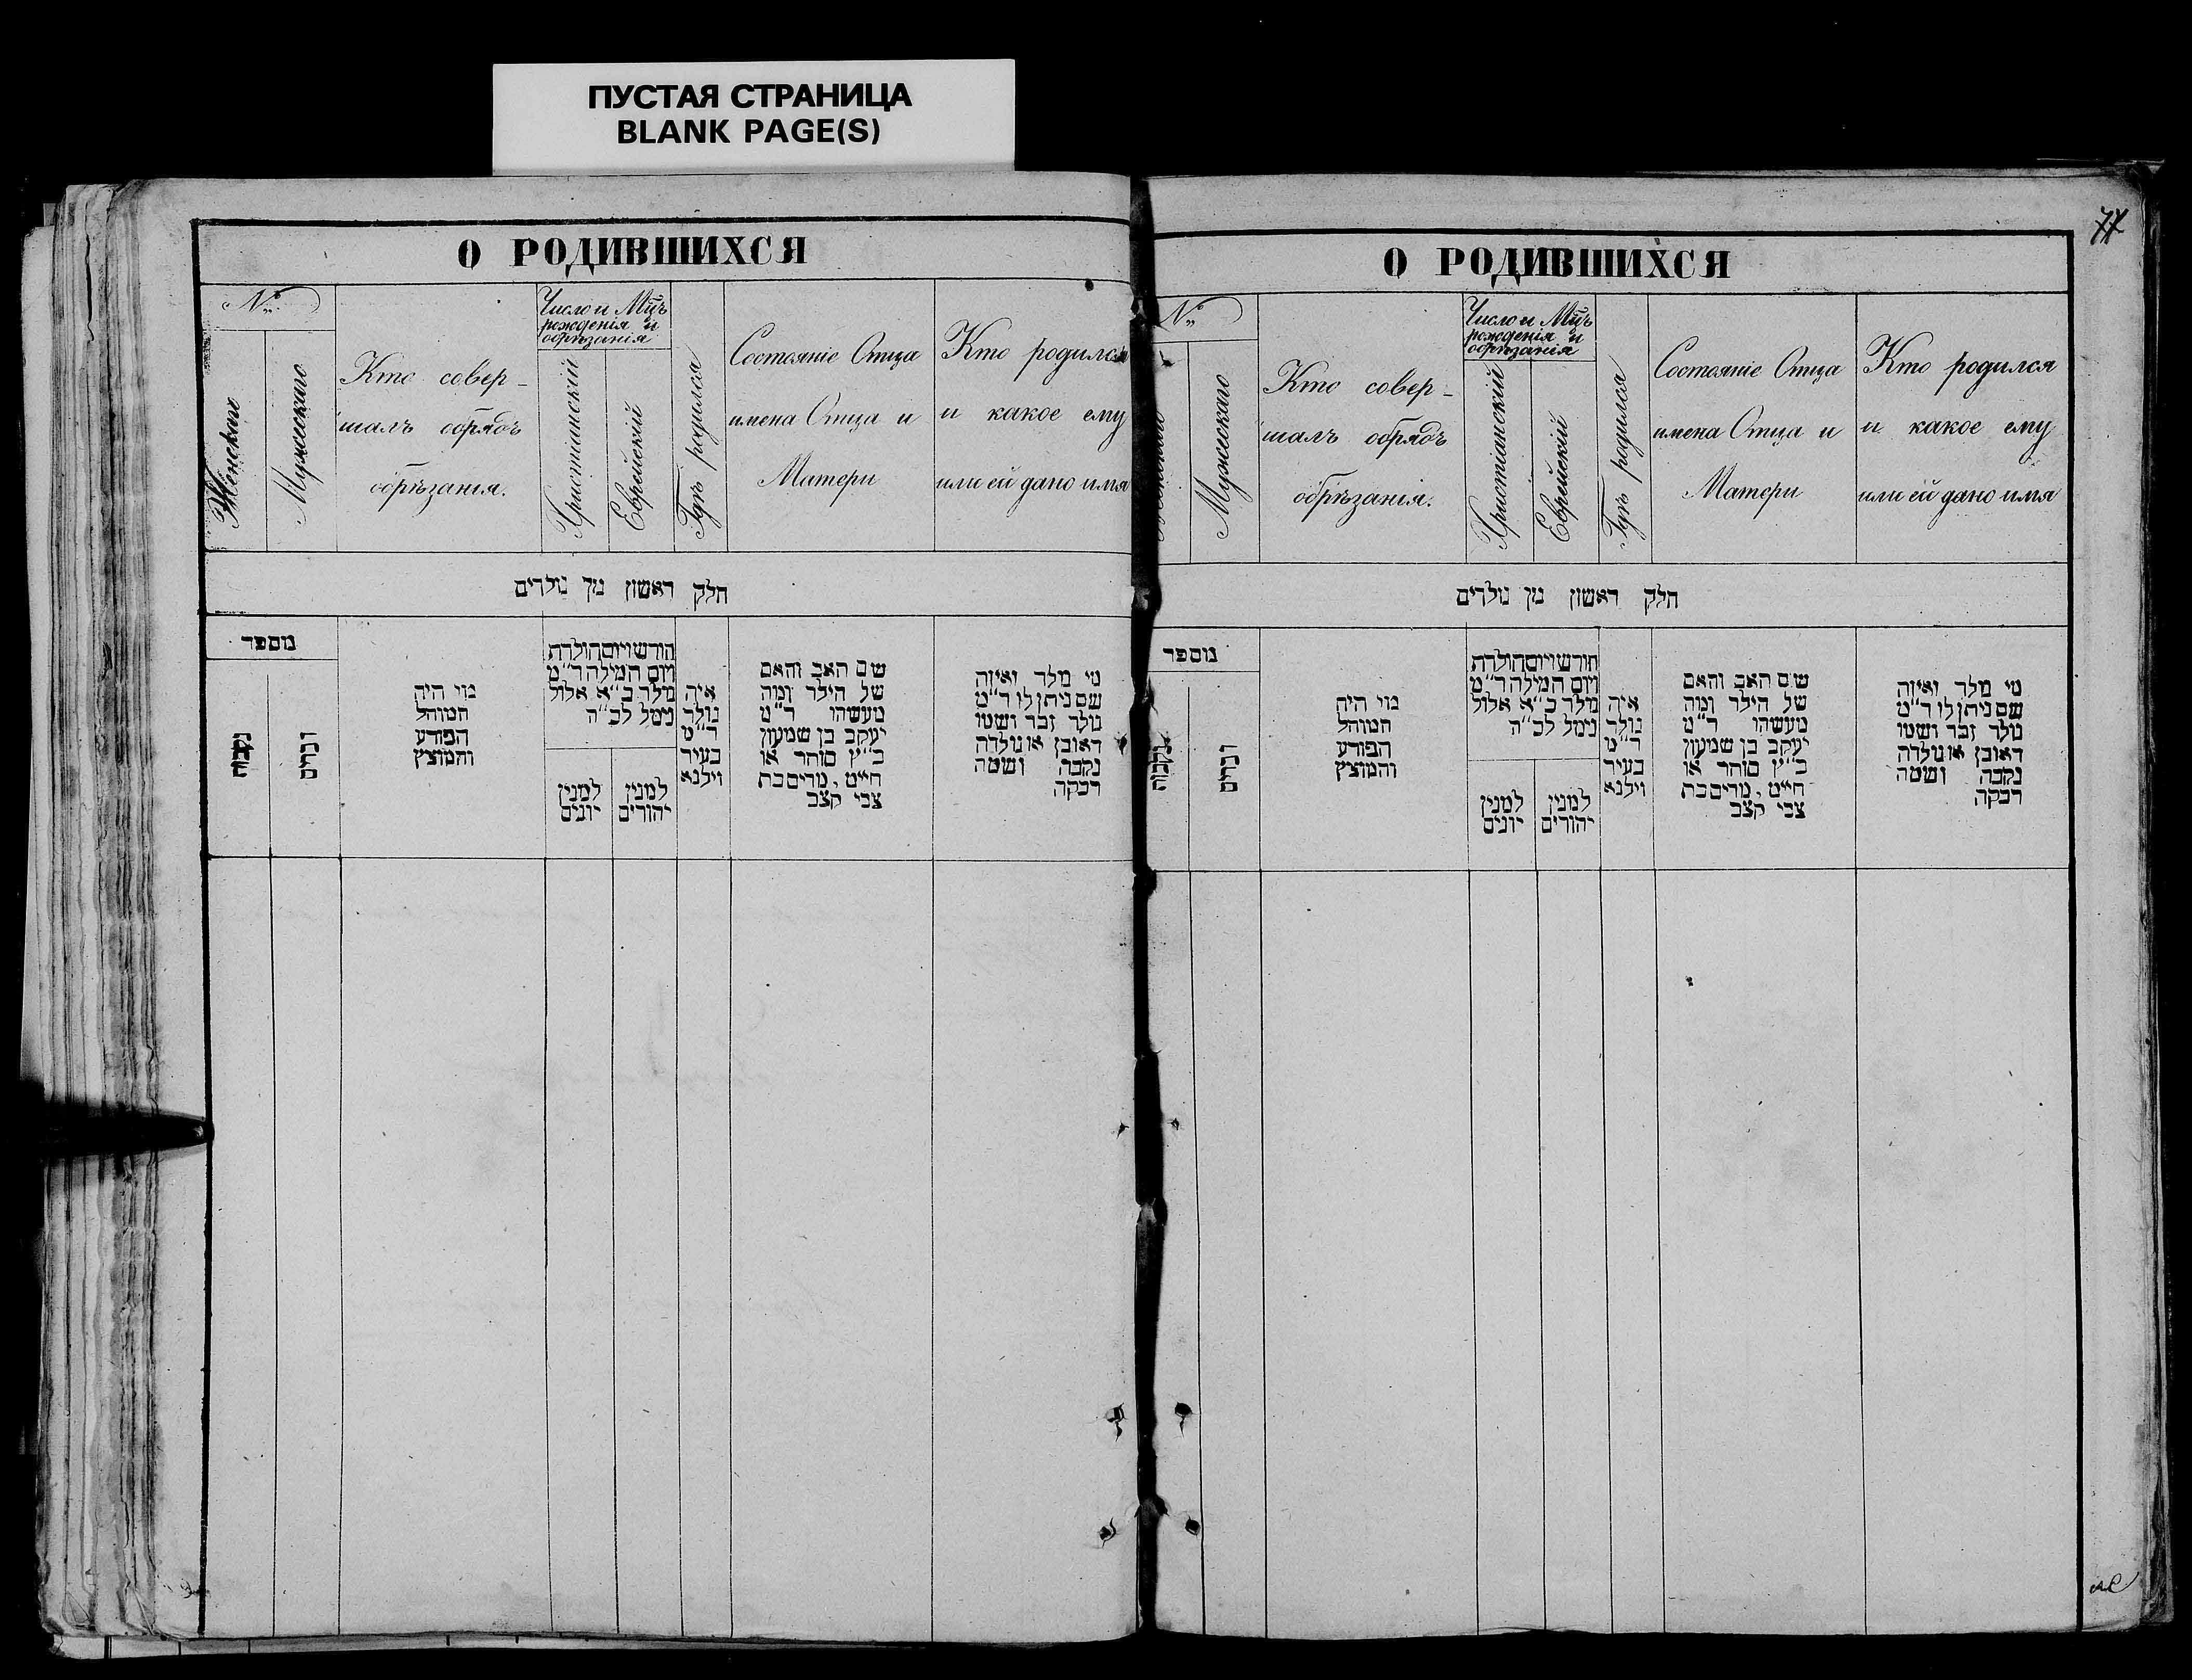 ПУСТАЯ СТРАНИЦА
BLANK PAGE(S)
О РОДИВШИХСЯ
№
Женскаго
Мужескаго
Кто совер-
шалъ обрядъ
обрѣзанія.
Число и Мцъ
рожденія и
обрѣзанія
Христіанскій
Еврейскій
Гдѣ родился
Состояніе Отца
имена Отца и
Матери
Кто родился
и какое ему
или ей дано имя
חלק ראשון מן נולדים
מספר
נקבות
זכרים
מי היה
המוהל
הפורע
והמוצץ
חודש ויום הולדת
ויום המילה ד״מ
נולד כ״א אלול
נימל לכ״ה
למנין
יונים
למנין
יהודים
איה
נולד
ד״מ
בעיר
וילנא
שם האב והאם
של הילד ומה
מעשהו ד״מ
יעקב בן שמעון
כ״ץ סוחר או
חייט, מרים בת
צבי קצב
מי נולד ואיזה
שם ניתן לו ד״מ
נולד זכר ושמו
ראובן או נולדה
נקבה ושמה
רבקה
77
О РОДИВШИХСЯ
№
Мужескаго
Кто совер-
шалъ обрядъ
обрѣзанія.
Число и Мцъ
рожденія и
обрѣзанія
Христіанскій
Еврейскій
Гдѣ родился
Состояніе Отца
имена Отца и
Матери
Кто родился
и какое ему
или ей дано имя
חלק ראשון מן נולדים
מספר
נקבות
זכרים
מי היה
המוהל
הפורע
והמוצץ
חודש ויום הולדת
ויום המילה ד״מ
נולד כ״א אלול
נימל לכ״ה
למנין
יונים
למנין
יהודים
איה
נולד
ד״מ
בעיר
וילנא
שם האב והאם
של הילד ומה
מעשהו ד״מ
יעקב בן שמעון
כ״ץ סוחר או
חייט, מרים בת
צבי קצב
מי נולד ואיזה
שם ניתן לו ד״מ
נולד זכר ושמו
ראובן או נולדה
נקבה ושמה
רבקה